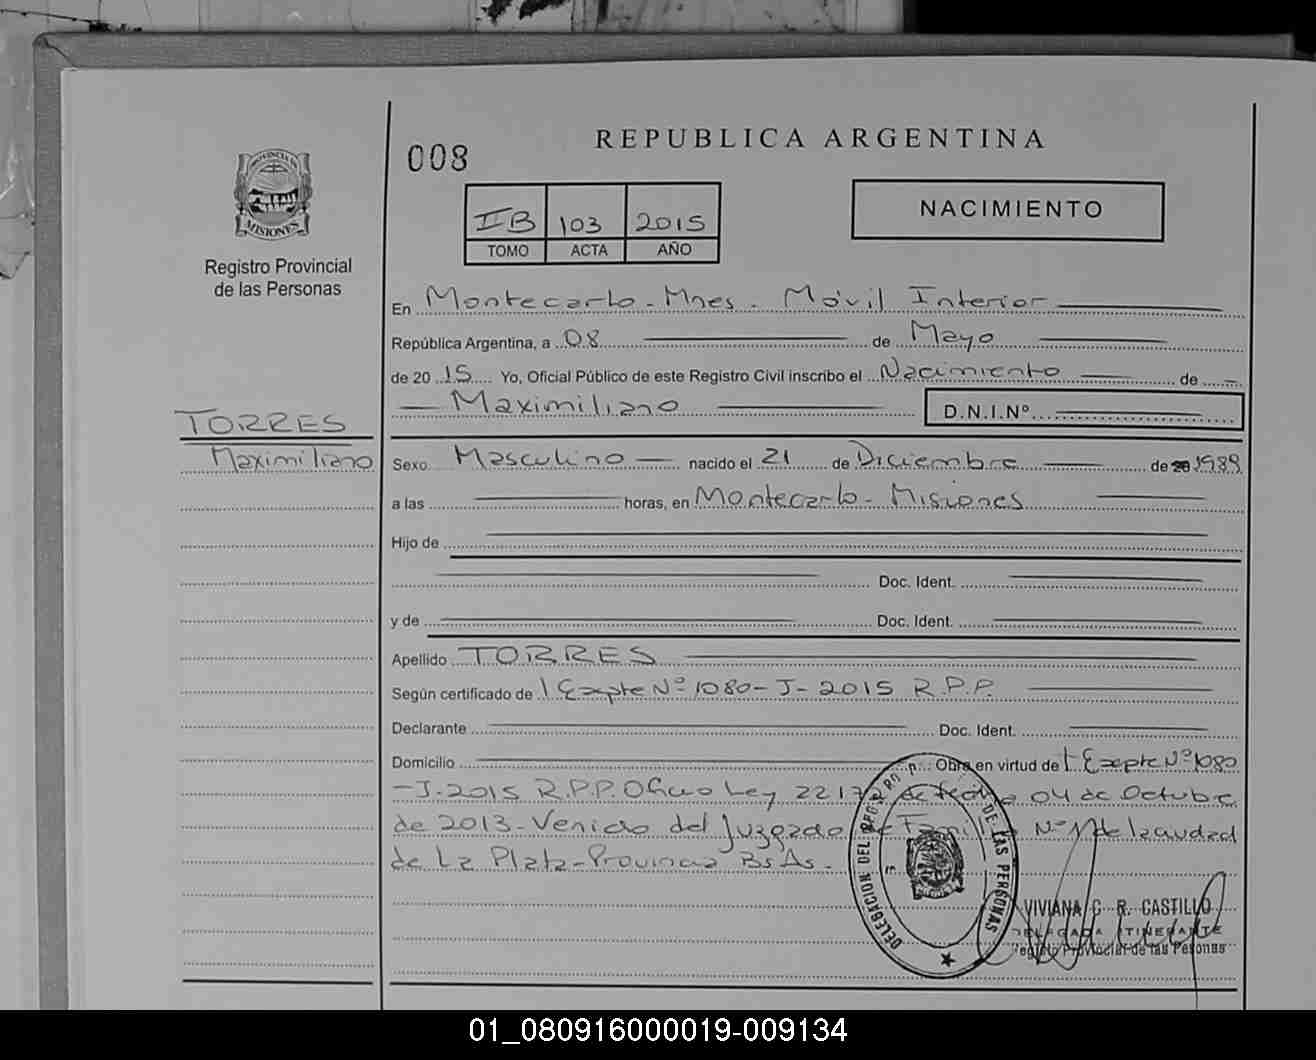 REPUBLICA ARGENTINA
008
PROVINCIA DE
MISIONES
Registro Provincial
de las Personas
IIB 103 2015
TOMO ACTA AÑO
NACIMIENTO
En Montecarlo - Mnes - Móvil Interior
República Argentina, a 08 de Mayo
de 20 15 Yo, Oficial Público de este Registro Civil inscribo el Nacimiento de
Maximiliano D.N.I.Nº
TORRES
Maximiliano
Sexo Masculino nacido el 21 de Diciembre de 20 1989
a las horas, en Montecarlo - Misiones
Hijo de
Doc. Ident.
y de Doc. Ident.
Apellido TORRES
Según certificado de Expte Nº 1080-J-2015 R.P.P.
Declarante Doc. Ident.
Domicilio Obra en virtud de Expte Nº 1080
-J-2015 R.P.P. Oficio Ley de fecha 04 de Octubre
de 2013 - Venido del Juzgado de Familia Nº 1 de la ciudad
de La Plata - Provincia Bs As.
DELEGACION DEL REG. DE LAS PERSONAS
VIVIANA C. R. CASTILLO
DELEGADA ITINERANTE
Registro Provincial de las Pesonas
01_080916000019-009134